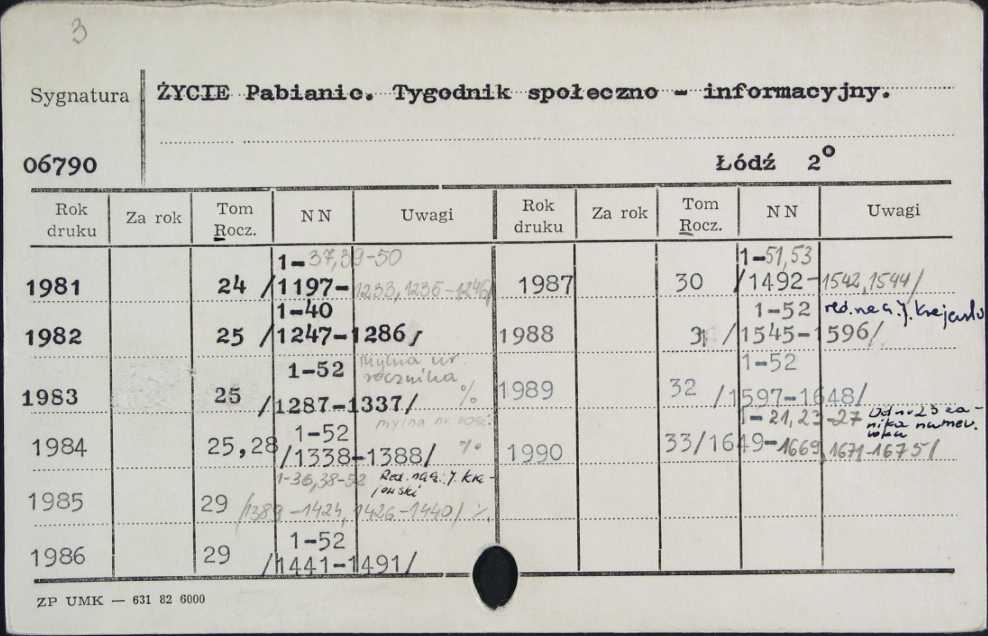 3
Sygnatura ŻYCIE Pabianic. Tygodnik społeczno - informacyjny.
06790 Łódź 2°
Rok druku Za rok Tom Rocz. NN Uwagi Rok druku Za rok Tom Rocz. NN Uwagi
1981 24 1-37,39-50 /1197-1233,1235-1246/ 1987 30 1-51,53 /1492-1542,1544/
1982 25 1-40 /1247-1286/ 1988 31 1-52 /1545-1596/ red. nacz. J. Krajewski
1983 25 1-52 /1287-1337/ Mylna nr rocznika % 1989 32 1-52 /1597-1648/
1984 25,28 1-52 /1338-1388/ mylna nr % 1990 33 1-21,23-27 /1649-1669,1671-1675/ Od nr 23 zanika numer.
1985 29 1-36,38-52 /1389-1424,1426-1440/ %. Red. nacz. J. Kra-
1986 29 1-52 /1441-1491/
ZP UMK — 631 82 6000